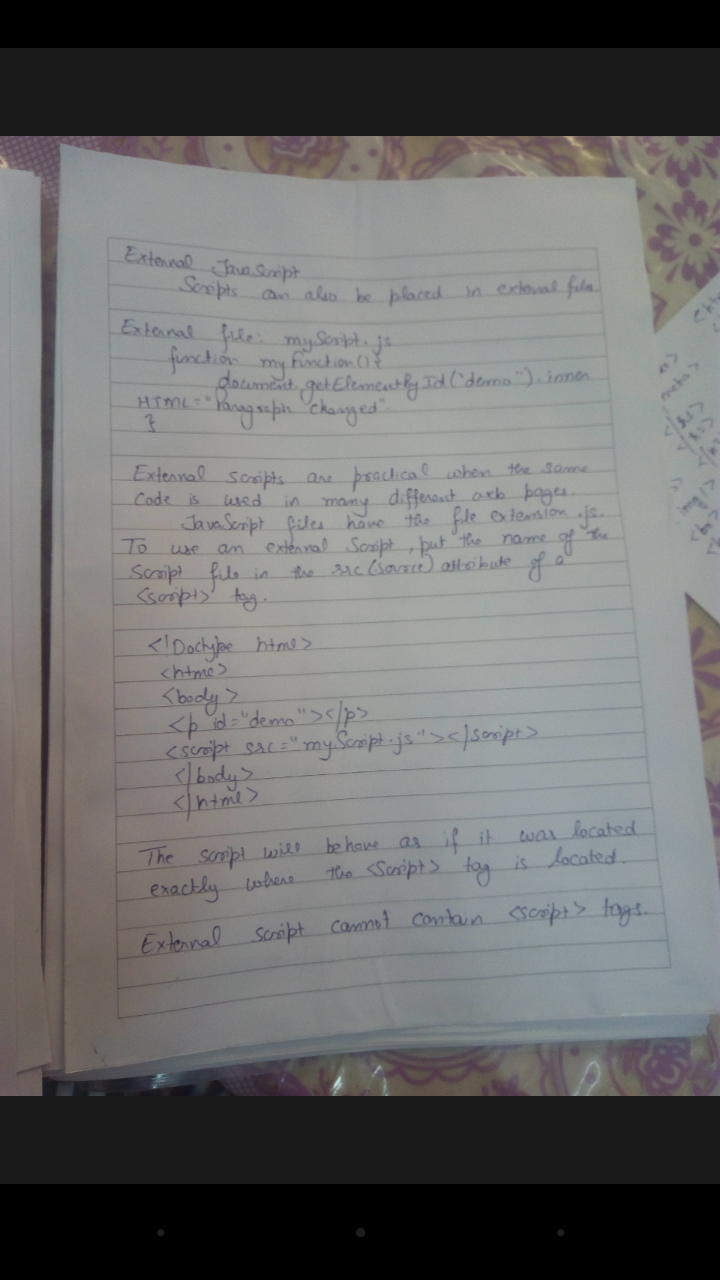 External JavaScript
Scripts can also be placed in external files
External file: myScript.js
function myFunction(){
document.getElementById("demo").inner
HTML="Paragraph changed".
}
External scripts are practical when the same
Code is used in many different web pages.
JavaScript files have the file extension .js.
To use an external Script, put the name of the
Script file in the src(source) attribute of a
<script> tag.
<!Doctype html>
<html>
<body>
<p id="demo"></p>
<script src="myScript.js"></script>
</body>
</html>
The script will behave as if it was located
exactly where the <Script> tag is located.
External script cannot contain <script> tags.